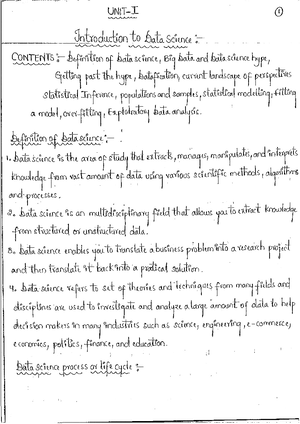 UNIT-I
1
Introduction to Data Science :-
CONTENTS:- Definition of Data science, Big Data and Data science hype,
Getting past the hype, Datafication, current landscape of perspectives
statistical Inference, populations and samples, statistical modelling, fitting
a model, over-fitting, Exploratory Data analysis.
Definition of Data science :-
1. Data science is the area of study that extracts, manages, manipulates, and interprets
knowledge from vast amount of data using various scientific methods, algorithms
and processes.
2. Data science is an multidisciplinary field that allows you to extract knowledge
from structured or unstructured data.
3. Data science enables you to translate a business problem into a research project
and then translate it back into a pratical solution.
4. Data science refers to set of theories and techniques from many fields and
disciplines are used to investigate and analyze a large amount of data to help
decision makers in many industries such as science, engineering, e-commerce,
economics, politics, finance, and education.
Data science process or life cycle :-